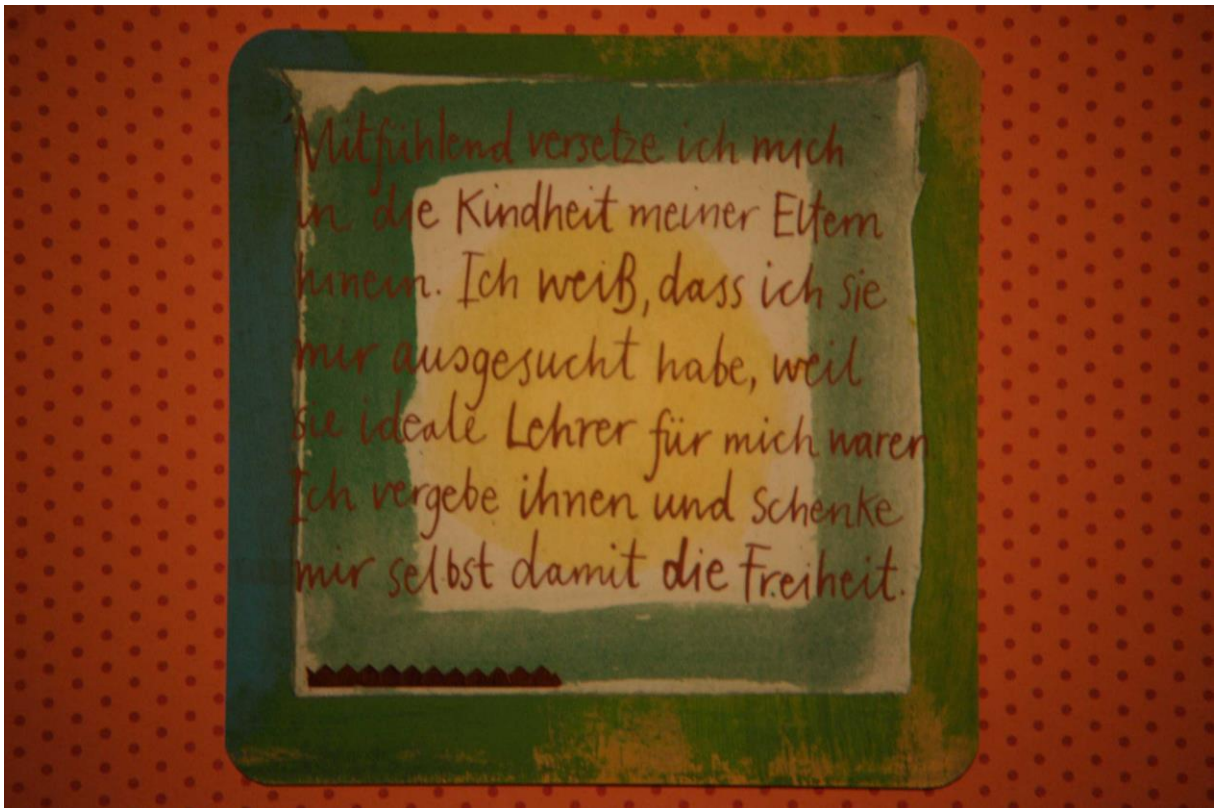 Mitfühlend versetze ich mich
in die Kindheit meiner Eltern
hinein. Ich weiß, dass ich sie
mir ausgesucht habe, weil
sie ideale Lehrer für mich waren
Ich vergebe ihnen und schenke
mir selbst damit die Freiheit.